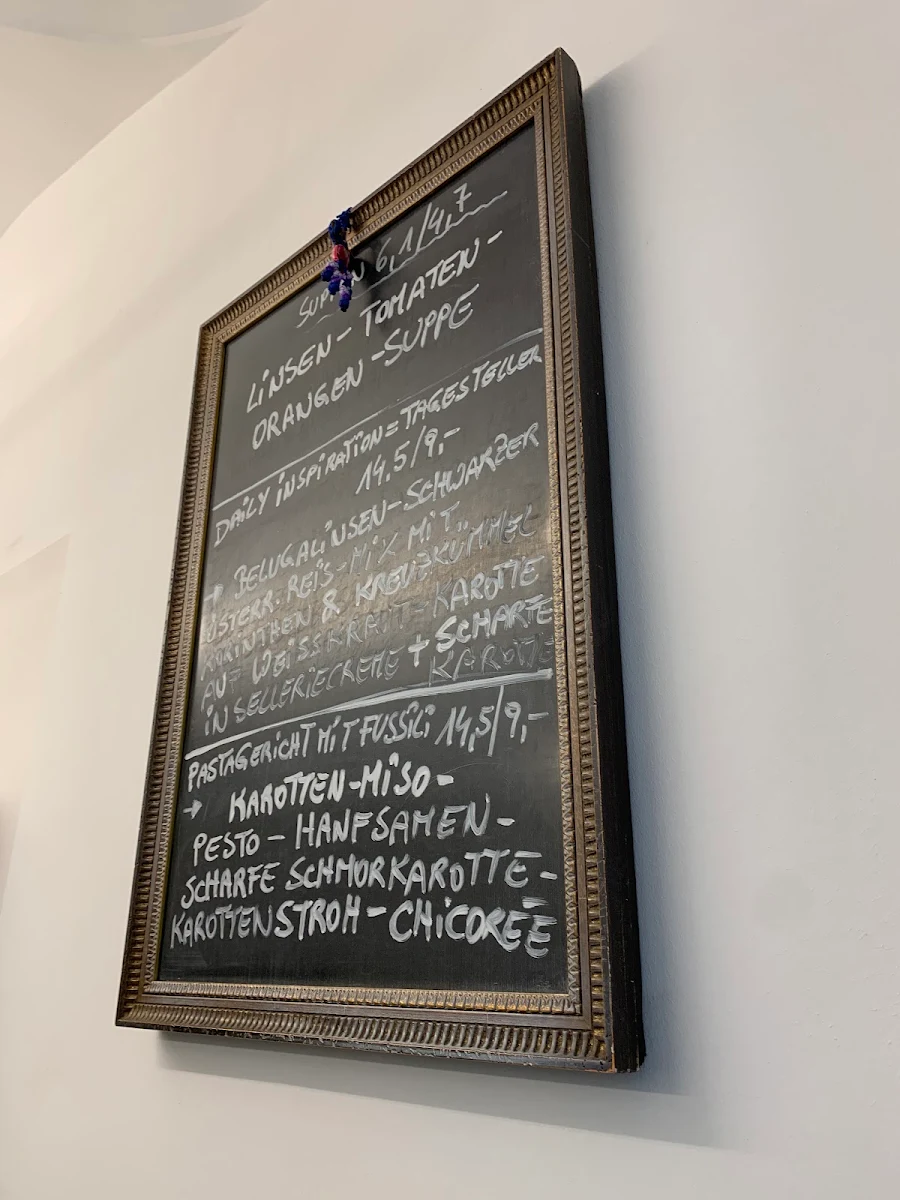 SUPPEN 6,1/4,7
LINSEN-TOMATEN-
ORANGEN-SUPPE
DAILY INSPIRATION=TAGESTELLER
14,5/9,-
→ BELUGALINSEN-SCHWARZER
ÖSTERR. REIS-MIX MIT
KORINTHEN & KREUZKÜMMEL
AUF WEISSKRAUT-KAROTTE
IN SELLERIECREME + SCHARFE
KAROTTE
PASTAGERICHT MIT FUSSILI 14,5/9,-
→ KAROTTEN-MISO-
PESTO-HANFSAMEN-
SCHARFE SCHMORKAROTTE-
KAROTTENSTROH-CHICOREÉ